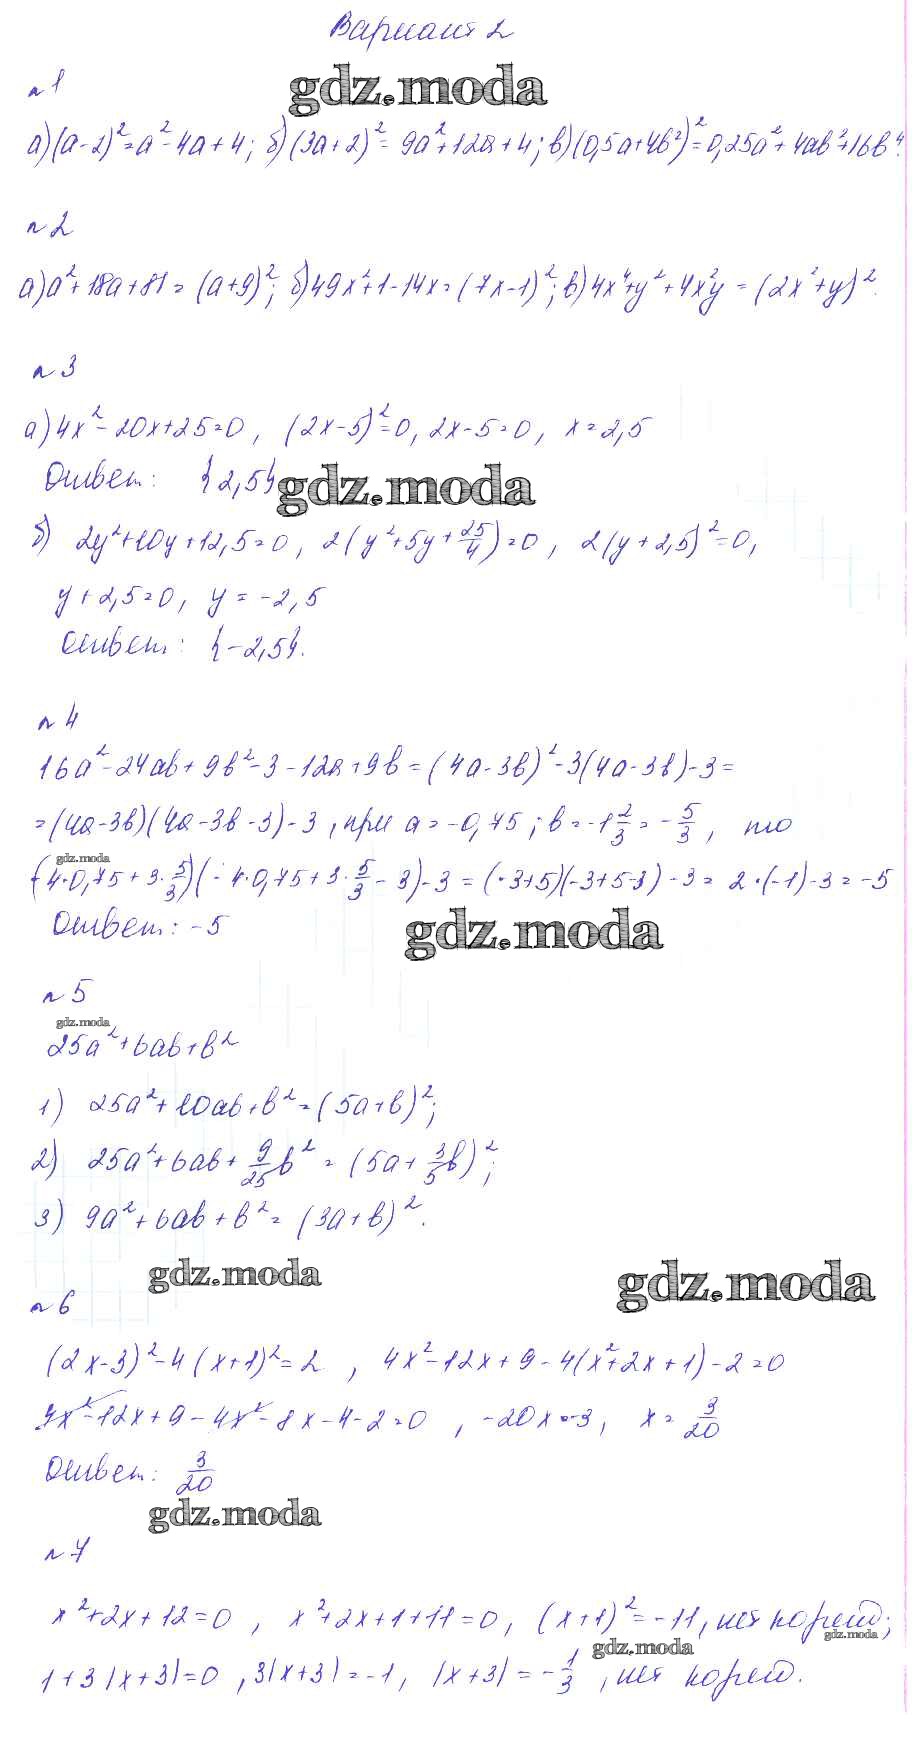 Вариант 2
n1
gdz.moda
а)(a-2)²=a²-4a+4; б)(3a+2)²=9a²+12a+4; в)(0,5a+4b²)²=0,25a²+4ab²+16b⁴.
n2
а)a²+18a+81=(a+9)²; б)49x²+1-14x=(7x-1)²; в)4x⁴+y²+4x²y=(2x²+y)².
n3
а)4x²-20x+25=0, (2x-5)²=0, 2x-5=0, x=2,5
Ответ: {2,5}
gdz.moda
б) 2y²+10y+12,5=0, 2(y²+5y+25/4)=0, 2(y+2,5)²=0,
y+2,5=0, y=-2,5
Ответ: {-2,5}.
n4
16a²-24ab+9b²-3-12a+9b=(4a-3b)²-3(4a-3b)-3=
=(4a-3b)(4a-3b-3)-3, при a=-0,75; b=-1 2/3=-5/3, то
gdz.moda
(-4·0,75+3·5/3)(-4·0,75+3·5/3-3)-3=(-3+5)(-3+5-3)-3=2·(-1)-3=-5
Ответ: -5
gdz.moda
n5
gdz.moda
25a²+6ab+b²
1) 25a²+10ab+b²=(5a+b)²;
2) 25a²+6ab+9/25b²=(5a+3/5b)²;
3) 9a²+6ab+b²=(3a+b)².
gdz.moda
gdz.moda
n6
(2x-3)²-4(x+1)²=2, 4x²-12x+9-4(x²+2x+1)-2=0
4x²-12x+9-4x²-8x-4-2=0, -20x=-3, x=3/20
Ответ: 3/20
gdz.moda
n7
x²+2x+12=0, x²+2x+1+11=0, (x+1)²=-11, нет корней;
gdz.moda
gdz.moda
1+3|x+3|=0, 3|x+3|=-1, |x+3|=-1/3, нет корней.